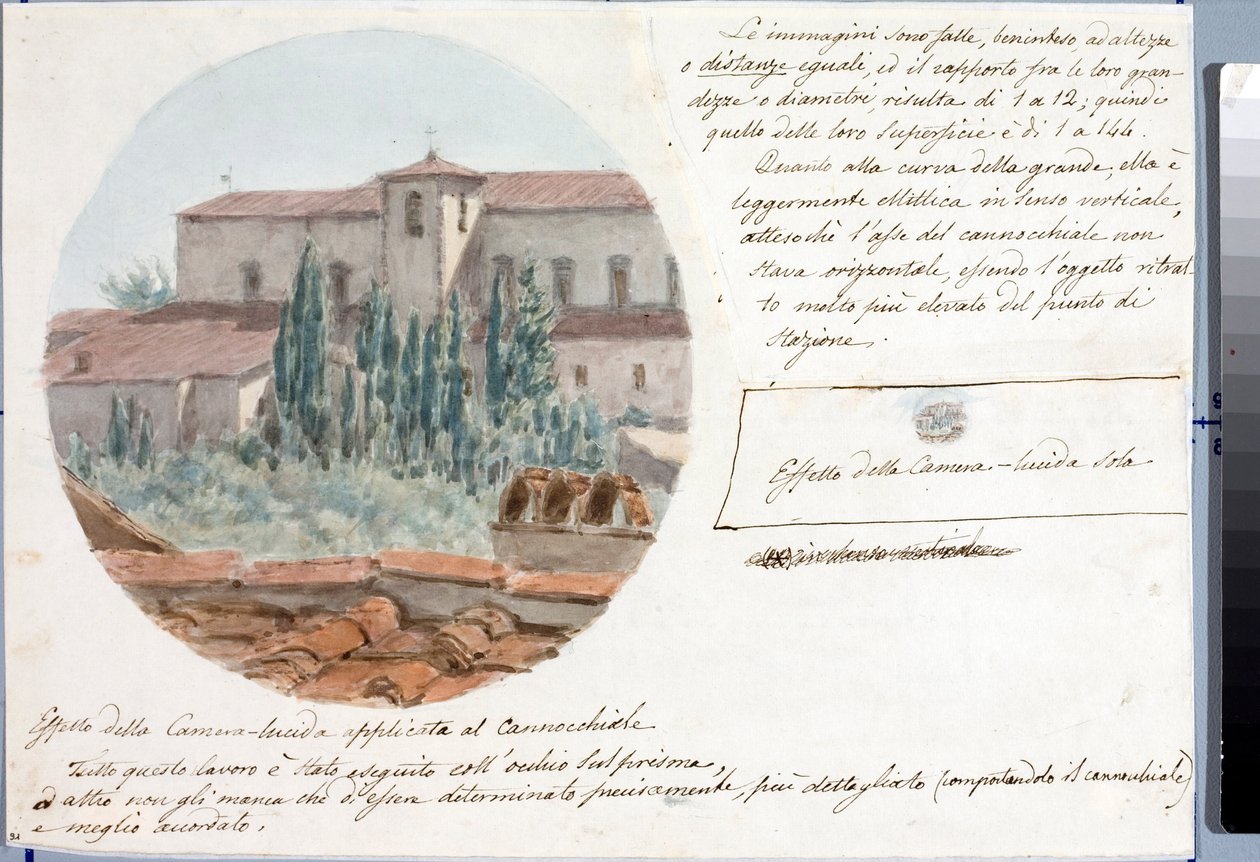 Le immagini sono fatte, beninteso, ad altezze
o distanze eguali, ed il rapporto fra le loro gran-
dezze o diametri, risulta di 1 a 12; quindi
quello delle loro superficie è di 1 a 144.
Quanto alla curva della grande, ella è
leggermente ellittica in senso verticale,
attesochè l'asse del cannocchiale non
stava orizzontale, essendo l'oggetto ritrat-
to molto più elevato del punto di
stazione.
Effetto della Camera-lucida sola
Effetto della Camera-lucida applicata al Cannocchiale
Tutto questo lavoro è stato eseguito coll'occhio sul prisma,
ad altro non gli manca che di essere determinato precisamente, più dettagliato (comportandolo il cannocchiale)
e meglio accordato.